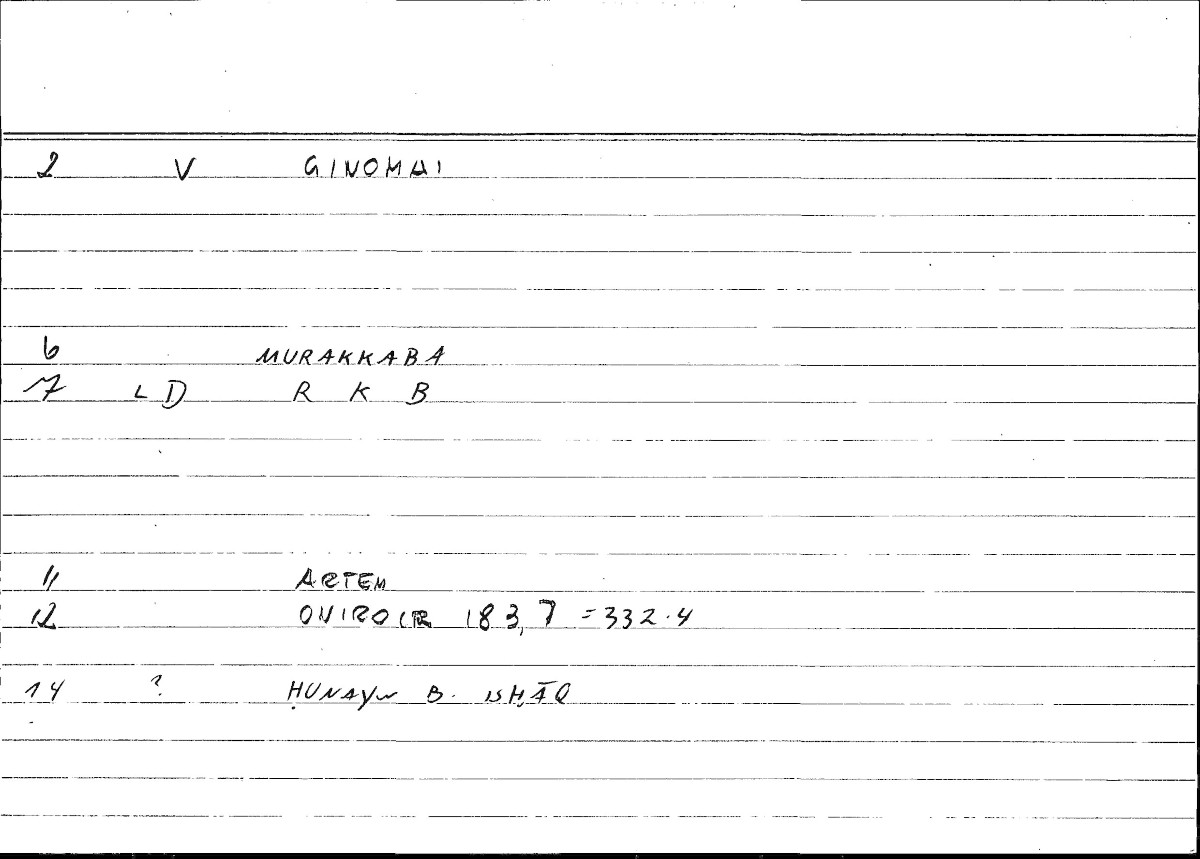 2 V GINOMAI
6 MURAKKABA
7 LD R K B
11 ARTEM
12 ONIROCR 183,7 =332.4
14 ? ḤUNAYN B. ISḤĀQ